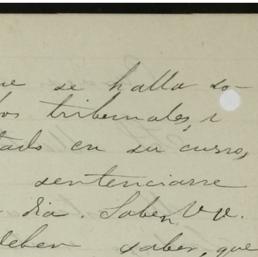 ue se halla so
os tribunales, i
tado en su curso,
sentenciarse
dia. Saben VV.
deben saber, que